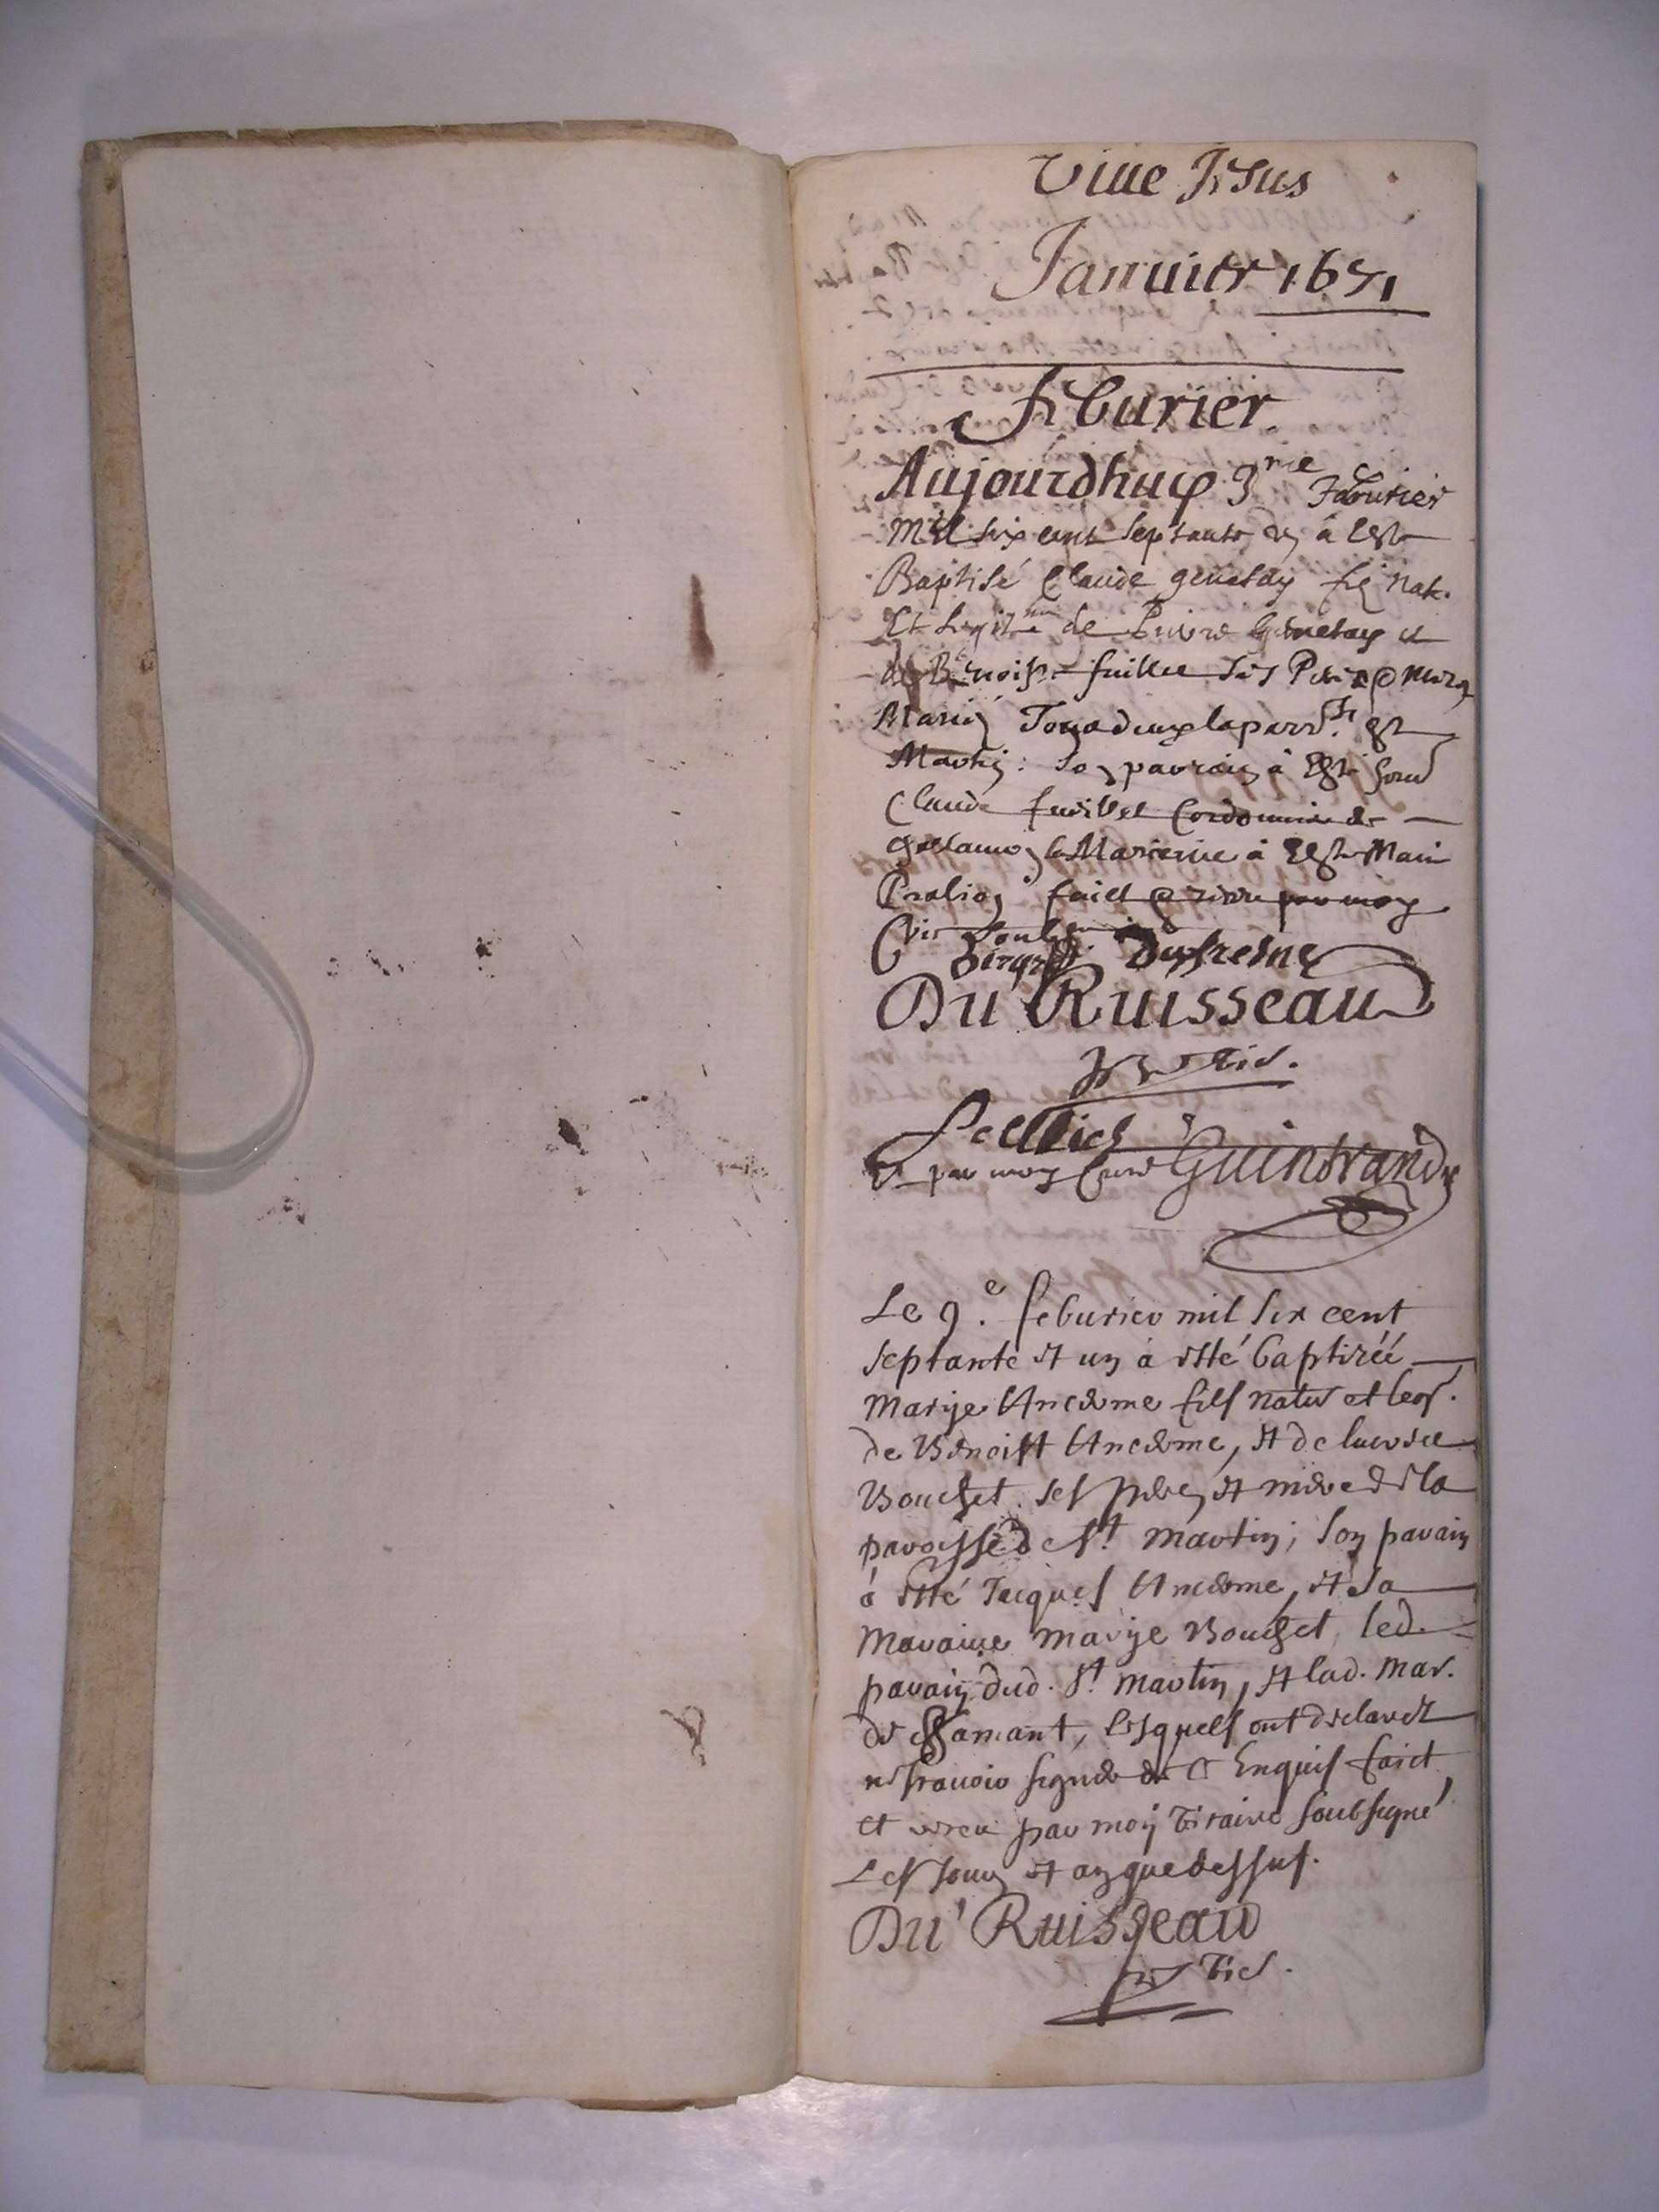 Viue Jesus
Januier 1671
feburier
Aujourdhuy 3me feburier
Mil six cent septante un à esté
Baptisé Claude genetay fis nat.
Et legitme de Pierre genetay et
de Benoiste fuillet ses Pere et mere
Mariés la parrse st
Martin: son parrain à esté honn
Claude fuillet Cordonnier de
la Marrine à esté Marie
faict et par moy
Dufresne
Du Ruisseau
Vic.
par moy Curé Guindrandy
Le 9.e feburier mil six cent
septante et un à esté baptizéé
Marye Ancesme fils natur et leg.
de Benoist Ancesme, et de
Bouchet. ses pere, et mere de la
paroisse de St. martin; son parain
à esté Jacques Ancesme, et sa
Maraine marye Bouchet, led.
parain dud. St. martin, et lad. mar.
de Chamant, lesquels ont declarez
ne scauoir signer de ce Enquis faict
et receu par moy Vicaire soubsigné
Les jour et an que dessus.
Du Ruisseau
Vic.